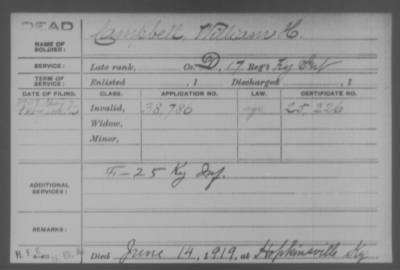 DEAD
NAME OF SOLDIER: Campbell, William H.
SERVICE: Late rank, Co. D, 17 Reg't Ky Inf
TERM OF SERVICE: Enlisted , 1 Discharged , 1
DATE OF FILING. CLASS. APPLICATION NO. LAW. CERTIFICATE NO.
Invalid, 38,786 25,226
Widow,
Minor,
ADDITIONAL SERVICES: 25 Ky Inf.
REMARKS:
Died June 14, 1919, at Hopkinsville Ky